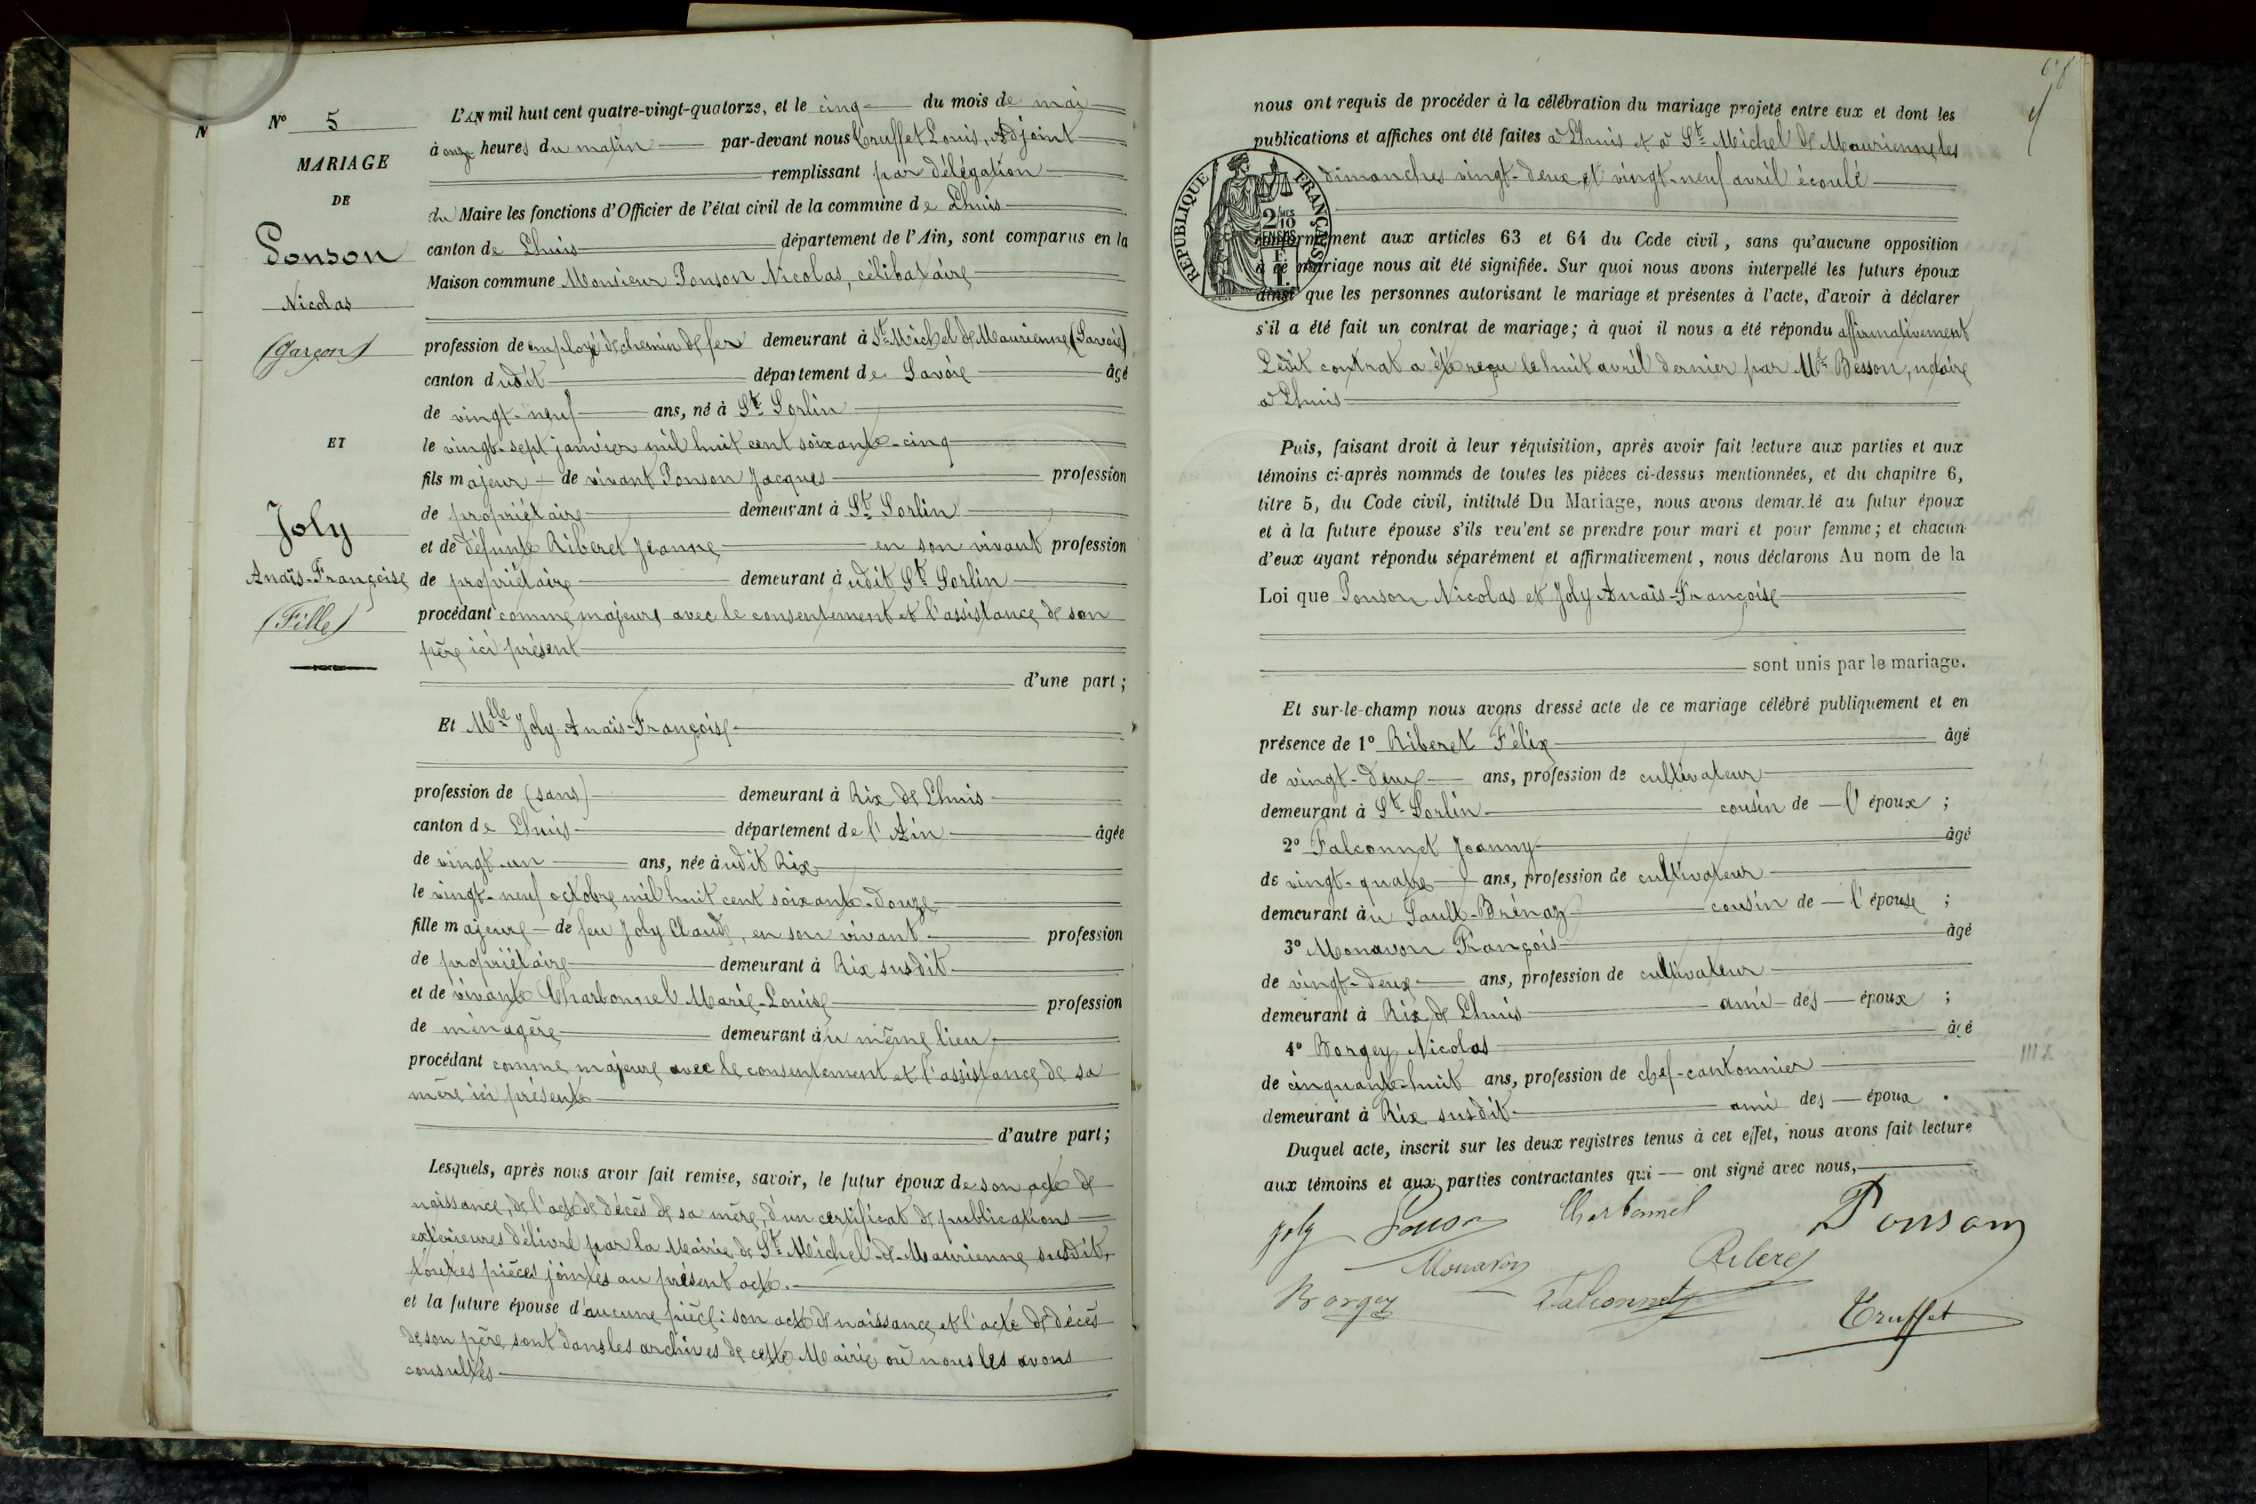 N
N° 5
MARIAGE
DE
Ponson
Nicolas
(Garçon)
ET
Joly
Anaïs-Françoise
(Fille)
L'AN mil huit cent quatre-vingt-quatorze, et le cinq du mois de mai
à onze heures du matin par-devant nous Truffet Louis, Adjoint
remplissant par délégation
du Maire les fonctions d'Officier de l'état civil de la commune de Lhuis
canton de Lhuis département de l'Ain, sont comparus en la
Maison commune Monsieur Ponson Nicolas, célibataire
profession de employé de chemin de fer demeurant à St Michel de Maurienne (Savoie)
canton dudit département de Savoie âgé
de vingt-neuf ans, né à St Sorlin
le vingt-sept janvier mil huit cent soixante-cinq
fils majeur de vivant Ponson Jacques profession
de propriétaire demeurant à St Sorlin
et de défunte Riberet Jeanne en son vivant profession
de propriétaire demeurant audit St Sorlin
procédant comme majeur avec le consentement et l'assistance de son
père ici présent
d'une part ;
Et Mlle Joly Anaïs-Françoise
profession de (sans) demeurant à Rix de Lhuis
canton de Lhuis département de l'Ain âgée
de vingt-un ans, née audit Rix
le vingt-neuf octobre mil huit cent soixante-douze
fille majeure de feu Joly Claude, en son vivant profession
de propriétaire demeurant à Rix susdit
et de vivante Charbonnel Marie-Louise profession
de ménagère demeurant au même lieu,
procédant comme majeure avec le consentement et l'assistance de sa
mère ici présente
d'autre part ;
Lesquels, après nous avoir fait remise, savoir, le futur époux de son acte de
naissance, de l'acte de décès de sa mère, d'un certificat de publications
extérieures délivré par la Mairie de St Michel-de-Maurienne susdit,
toutes pièces jointes au présent acte.
et la future épouse d'aucune pièce : son acte de naissance et l'acte de décès
de son père sont dans les archives de cette Mairie où nous les avons
consultés
nous ont requis de procéder à la célébration du mariage projeté entre eux et dont les
publications et affiches ont été faites à Lhuis et à St Michel de Maurienne les
dimanches vingt-deux et vingt-neuf avril écoulé
RÉPUBLIQUE FRANÇAISE
2/10
EN SUS
conformément aux articles 63 et 64 du Code civil, sans qu'aucune opposition
à ce mariage nous ait été signifiée. Sur quoi nous avons interpellé les futurs époux
ainsi que les personnes autorisant le mariage et présentes à l'acte, d'avoir à déclarer
s'il a été fait un contrat de mariage ; à quoi il nous a été répondu affirmativement
Ledit contrat a été reçu le huit avril dernier par Me Besson, notaire
à Lhuis
Puis, faisant droit à leur réquisition, après avoir fait lecture aux parties et aux
témoins ci-après nommés de toutes les pièces ci-dessus mentionnées, et du chapitre 6,
titre 5, du Code civil, intitulé Du Mariage, nous avons demandé au futur époux
et à la future épouse s'ils veulent se prendre pour mari et pour femme ; et chacun
d'eux ayant répondu séparément et affirmativement, nous déclarons Au nom de la
Loi que Ponson Nicolas et Joly Anaïs-Françoise
sont unis par le mariage.
Et sur-le-champ nous avons dressé acte de ce mariage célébré publiquement et en
présence de 1° Riberet Félix âgé
de vingt-deux ans, profession de cultivateur
demeurant à St Sorlin cousin de l'époux ;
2° Falconnet Joanny âgé
de vingt-quatre ans, profession de cultivateur
demeurant au Sault-Brénaz cousin de l'épouse ;
3° Monavon François âgé
de vingt-deux ans, profession de cultivateur
demeurant à Rix de Lhuis ami des époux ;
4° Borgey Nicolas âgé
de cinquante-huit ans, profession de chef-cantonnier
demeurant à Rix susdit ami des époux.
Duquel acte, inscrit sur les deux registres tenus à cet effet, nous avons fait lecture
aux témoins et aux parties contractantes qui ont signé avec nous,
Joly Ponson Charbonnel Ponson
Monavon Riberet
Borgey Falconnet Truffet